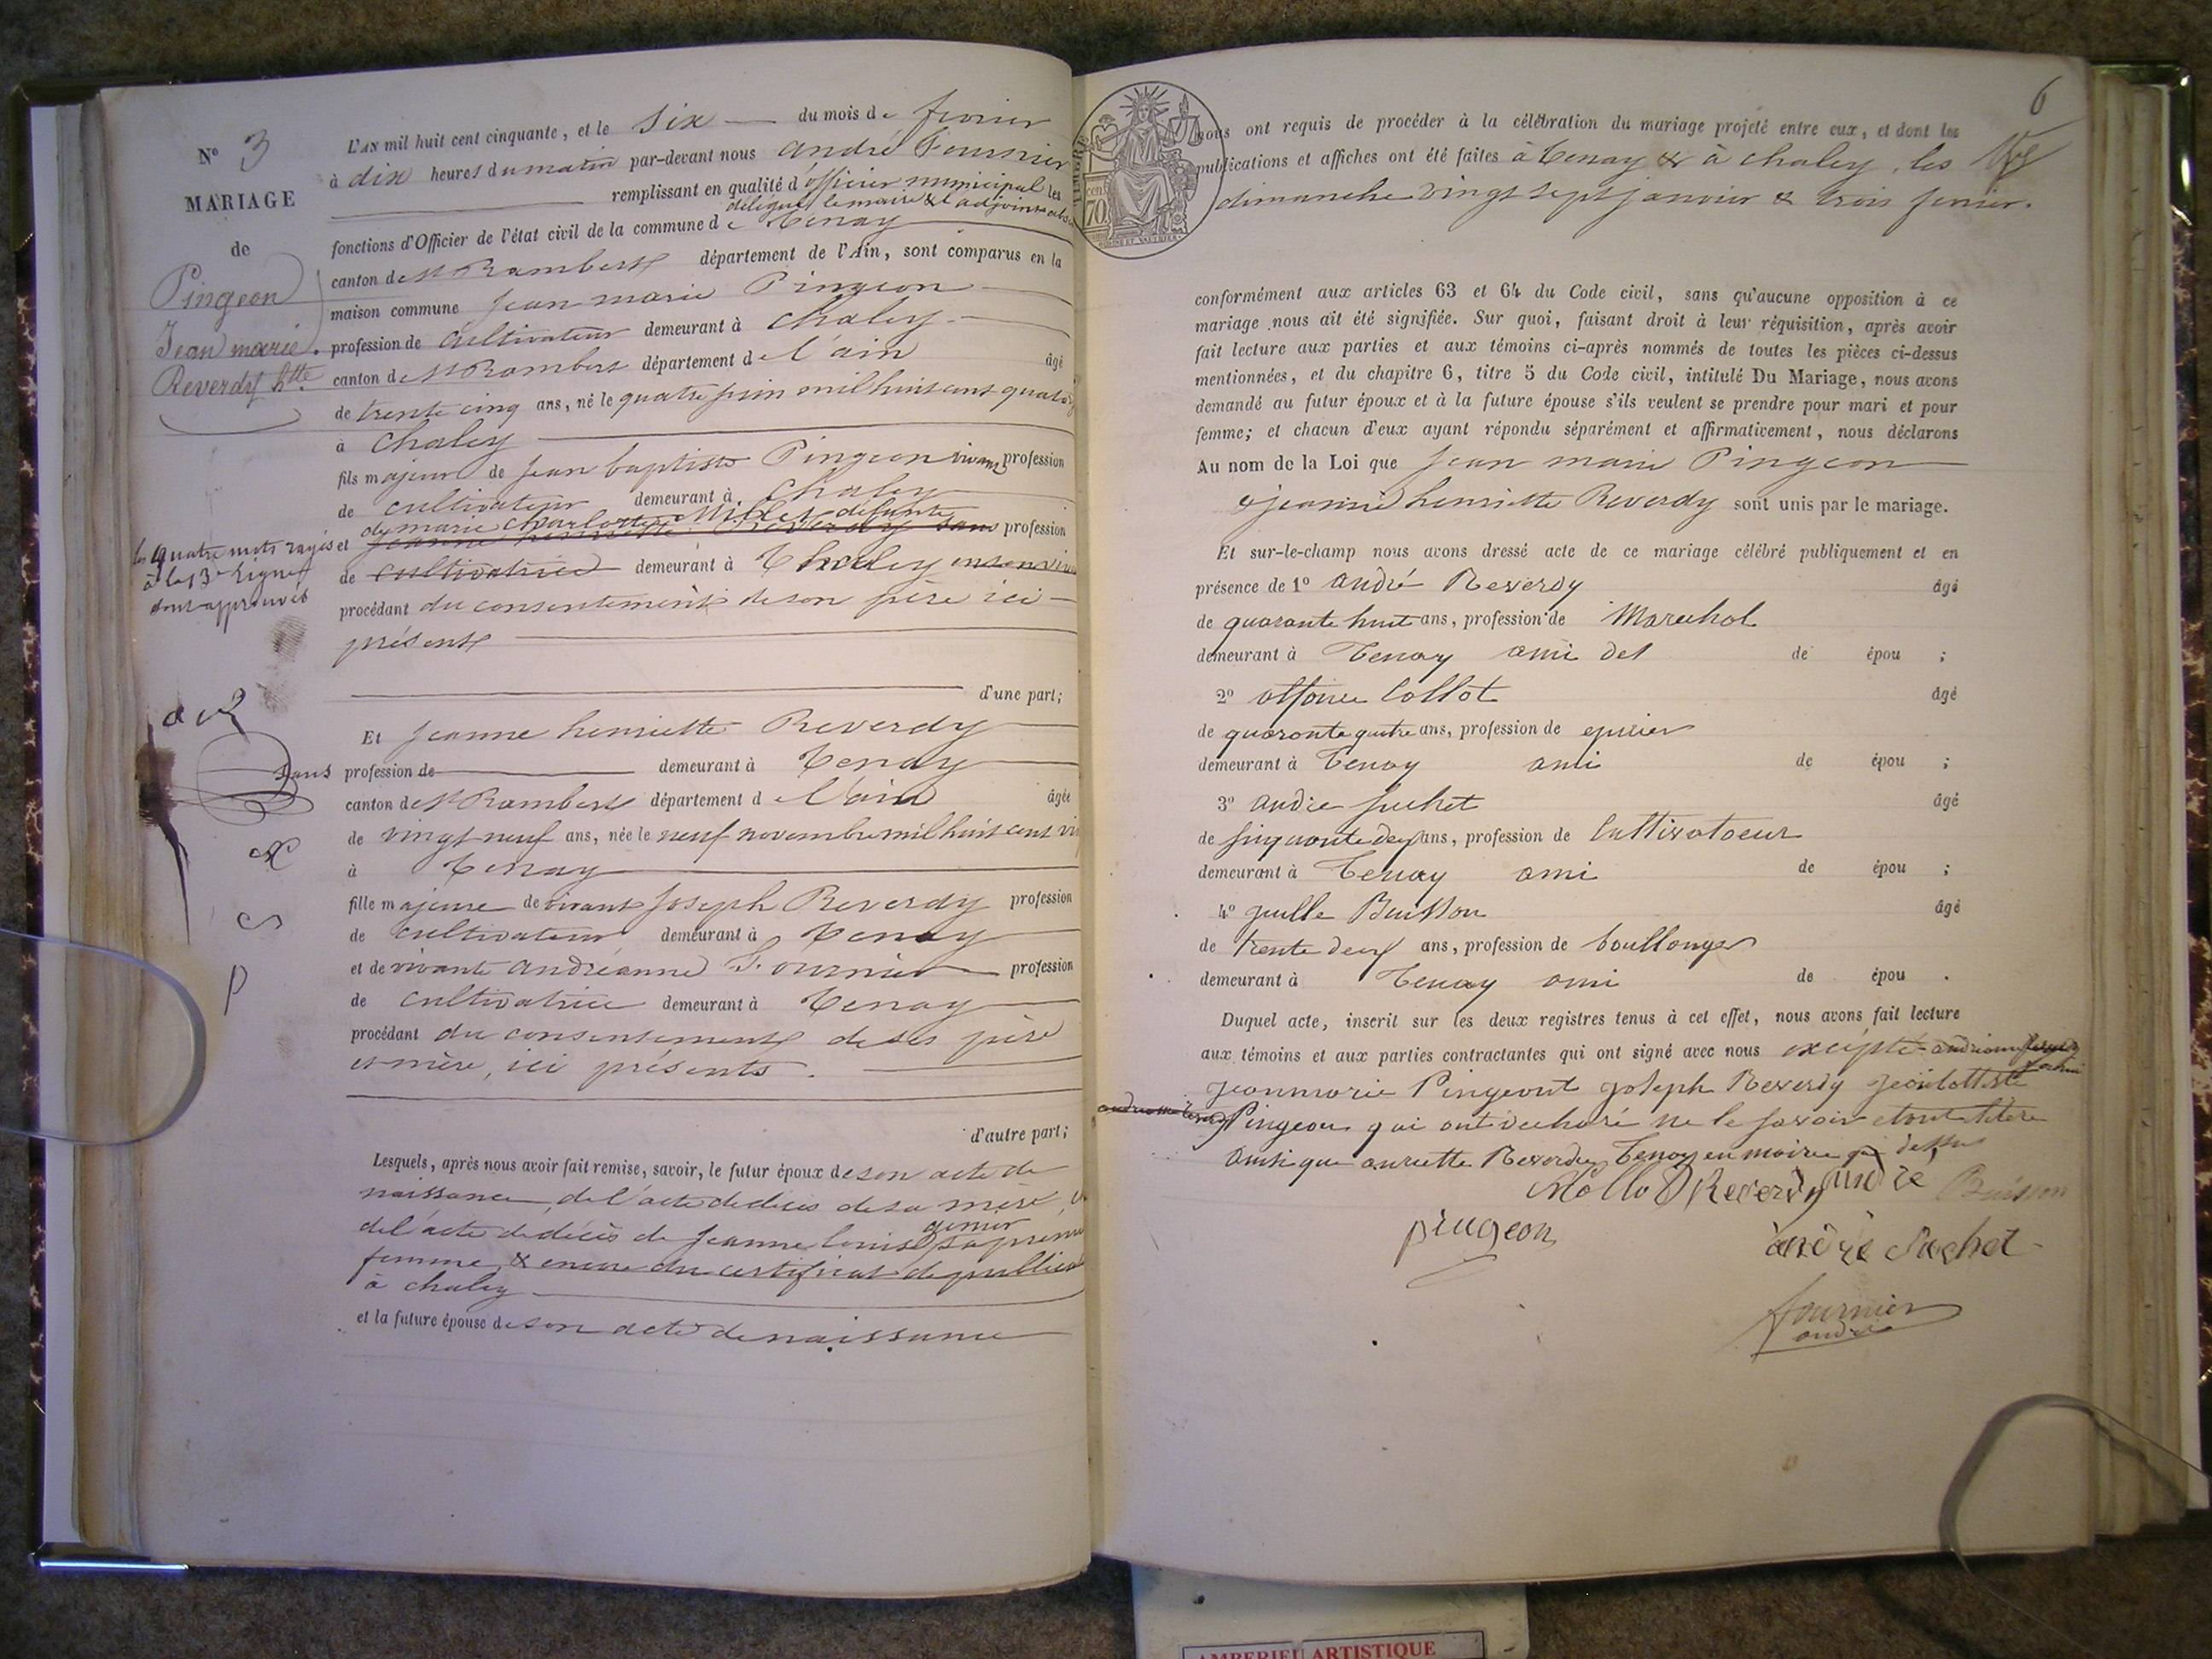 N° 3
MARIAGE
de
Pingeon
Jean marie.
Reverdy htte
L'AN mil huit cent cinquante, et le six du mois de fevrier
à dix heures du matin par-devant nous andré Fournier
remplissant en qualité d'officier municipal les
délégué le maire & l'adjoint
fonctions d'Officier de l'état civil de la commune de Tenay
canton de St Rambert département de l'Ain, sont comparus en la
maison commune Jean marie Pingeon
profession de cultivateur demeurant à chaley
canton de St Rambert département de l'ain âgé
de trente cinq ans, né le quatre juin mil huit cent
à chaley
fils majeur de Jean baptiste Pingeon vivant profession
de cultivateur demeurant à chaley
de marie charlotte Millet défunte
et Jeanne henriette Reverdy sans profession
de cultivatrice demeurant à Chaley
les quatre mots rayés
à la 13e ligne
sont approuvés
procédant du consentement de son père ici
présent
d'une part;
Et Jeanne henriette Reverdy
sans profession de demeurant à Tenay
canton de St Rambert département de l'ain âgée
de vingt neuf ans, née le neuf novembre mil huit cent
à Tenay
fille majeure de vivant Joseph Reverdy profession
de cultivateur demeurant à Tenay
et de vivante andréanne Fournier profession
de cultivatrice demeurant à Tenay
procédant du consentement de ses père
et mère, ici présents.
d'autre part;
Lesquels, après nous avoir fait remise, savoir, le futur époux de son acte de
naissance, de l'acte de décès de sa mère,
del'acte de décès de Jeanne louise
femme, & encore du certificat de
à chaley
et la future épouse de son acte de naissance
6
nous ont requis de procéder à la célébration du mariage projeté entre eux, et dont les
publications et affiches ont été faites à Tenay & à chaley, les
dimanche vingt sept janvier & trois fevrier.
conformément aux articles 63 et 64 du Code civil, sans qu'aucune opposition à ce
mariage nous ait été signifiée. Sur quoi, faisant droit à leur réquisition, après avoir
fait lecture aux parties et aux témoins ci-après nommés de toutes les pièces ci-dessus
mentionnées, et du chapitre 6, titre 5 du Code civil, intitulé Du Mariage, nous avons
demandé au futur époux et à la future épouse s'ils veulent se prendre pour mari et pour
femme; et chacun d'eux ayant répondu séparément et affirmativement, nous déclarons
Au nom de la Loi que Jean marie Pingeon
& jeanne henriette Reverdy sont unis par le mariage.
Et sur-le-champ nous avons dressé acte de ce mariage célébré publiquement et en
présence de 1° andré Reverdy âgé
de quarante huit ans, profession de Marechal
demeurant à Tenay ami des de épou ;
2° Collot âgé
de quaronte quatre ans, profession de epicier
demeurant à Tenay ami de épou ;
3° andre Juchet âgé
de ans, profession de Cultivatoeur
demeurant à Tenay ami de épou ;
4° Buisson âgé
de trente deux ans, profession de boullonger
demeurant à Tenay ami de épou .
Duquel acte, inscrit sur les deux registres tenus à cet effet, nous avons fait lecture
aux témoins et aux parties contractantes qui ont signé avec nous excepté
jeanmarie Pingeont joseph Reverdy
Pingeon qui ont ne le savoir
ainsi que Reverdy Tenay
Collot Reverdy andre Buisson
pingeon
andré Suchet
fournier
andré
AMBERIEU ARTISTIQUE